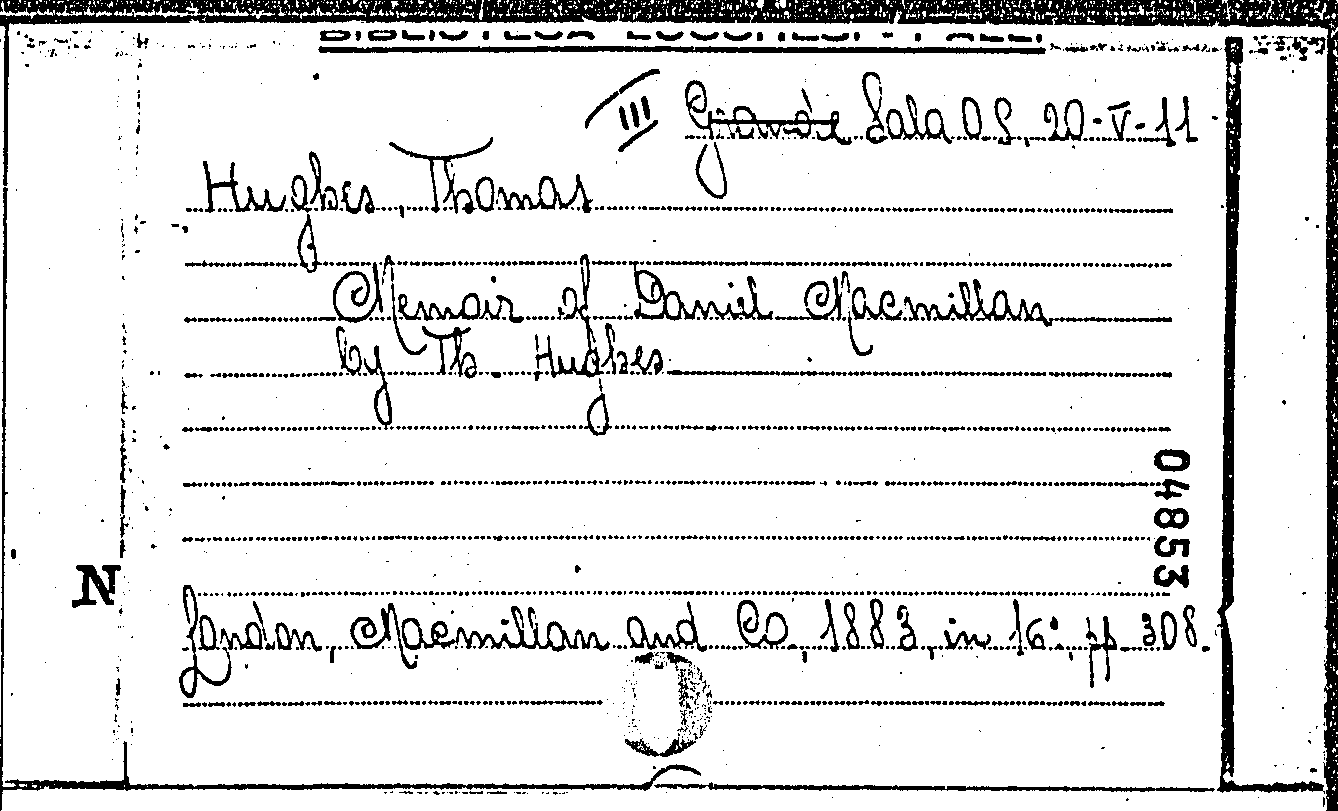 BIBLIOTECA LUCCHESI - PALLI
III Grande Sala O S, 20-V-11
Hughes, Thomas
Memoir of Daniel Macmillan
by Th. Hughes
04853
N
London, Macmillan and Co, 1883, in 16°, pp. 308.